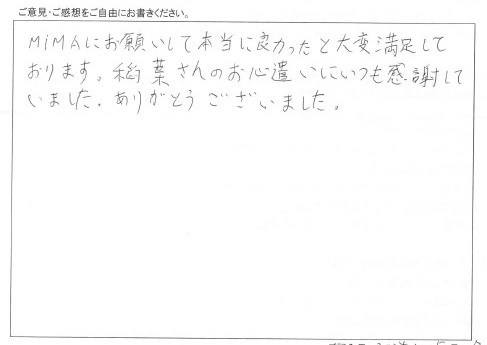 ご意見・ご感想をご自由にお書きください。
MiMAにお願いして本当に良かったと大変満足して
おります。稲葉さんのお心遣いにいつも感謝して
いました。ありがとうございました。